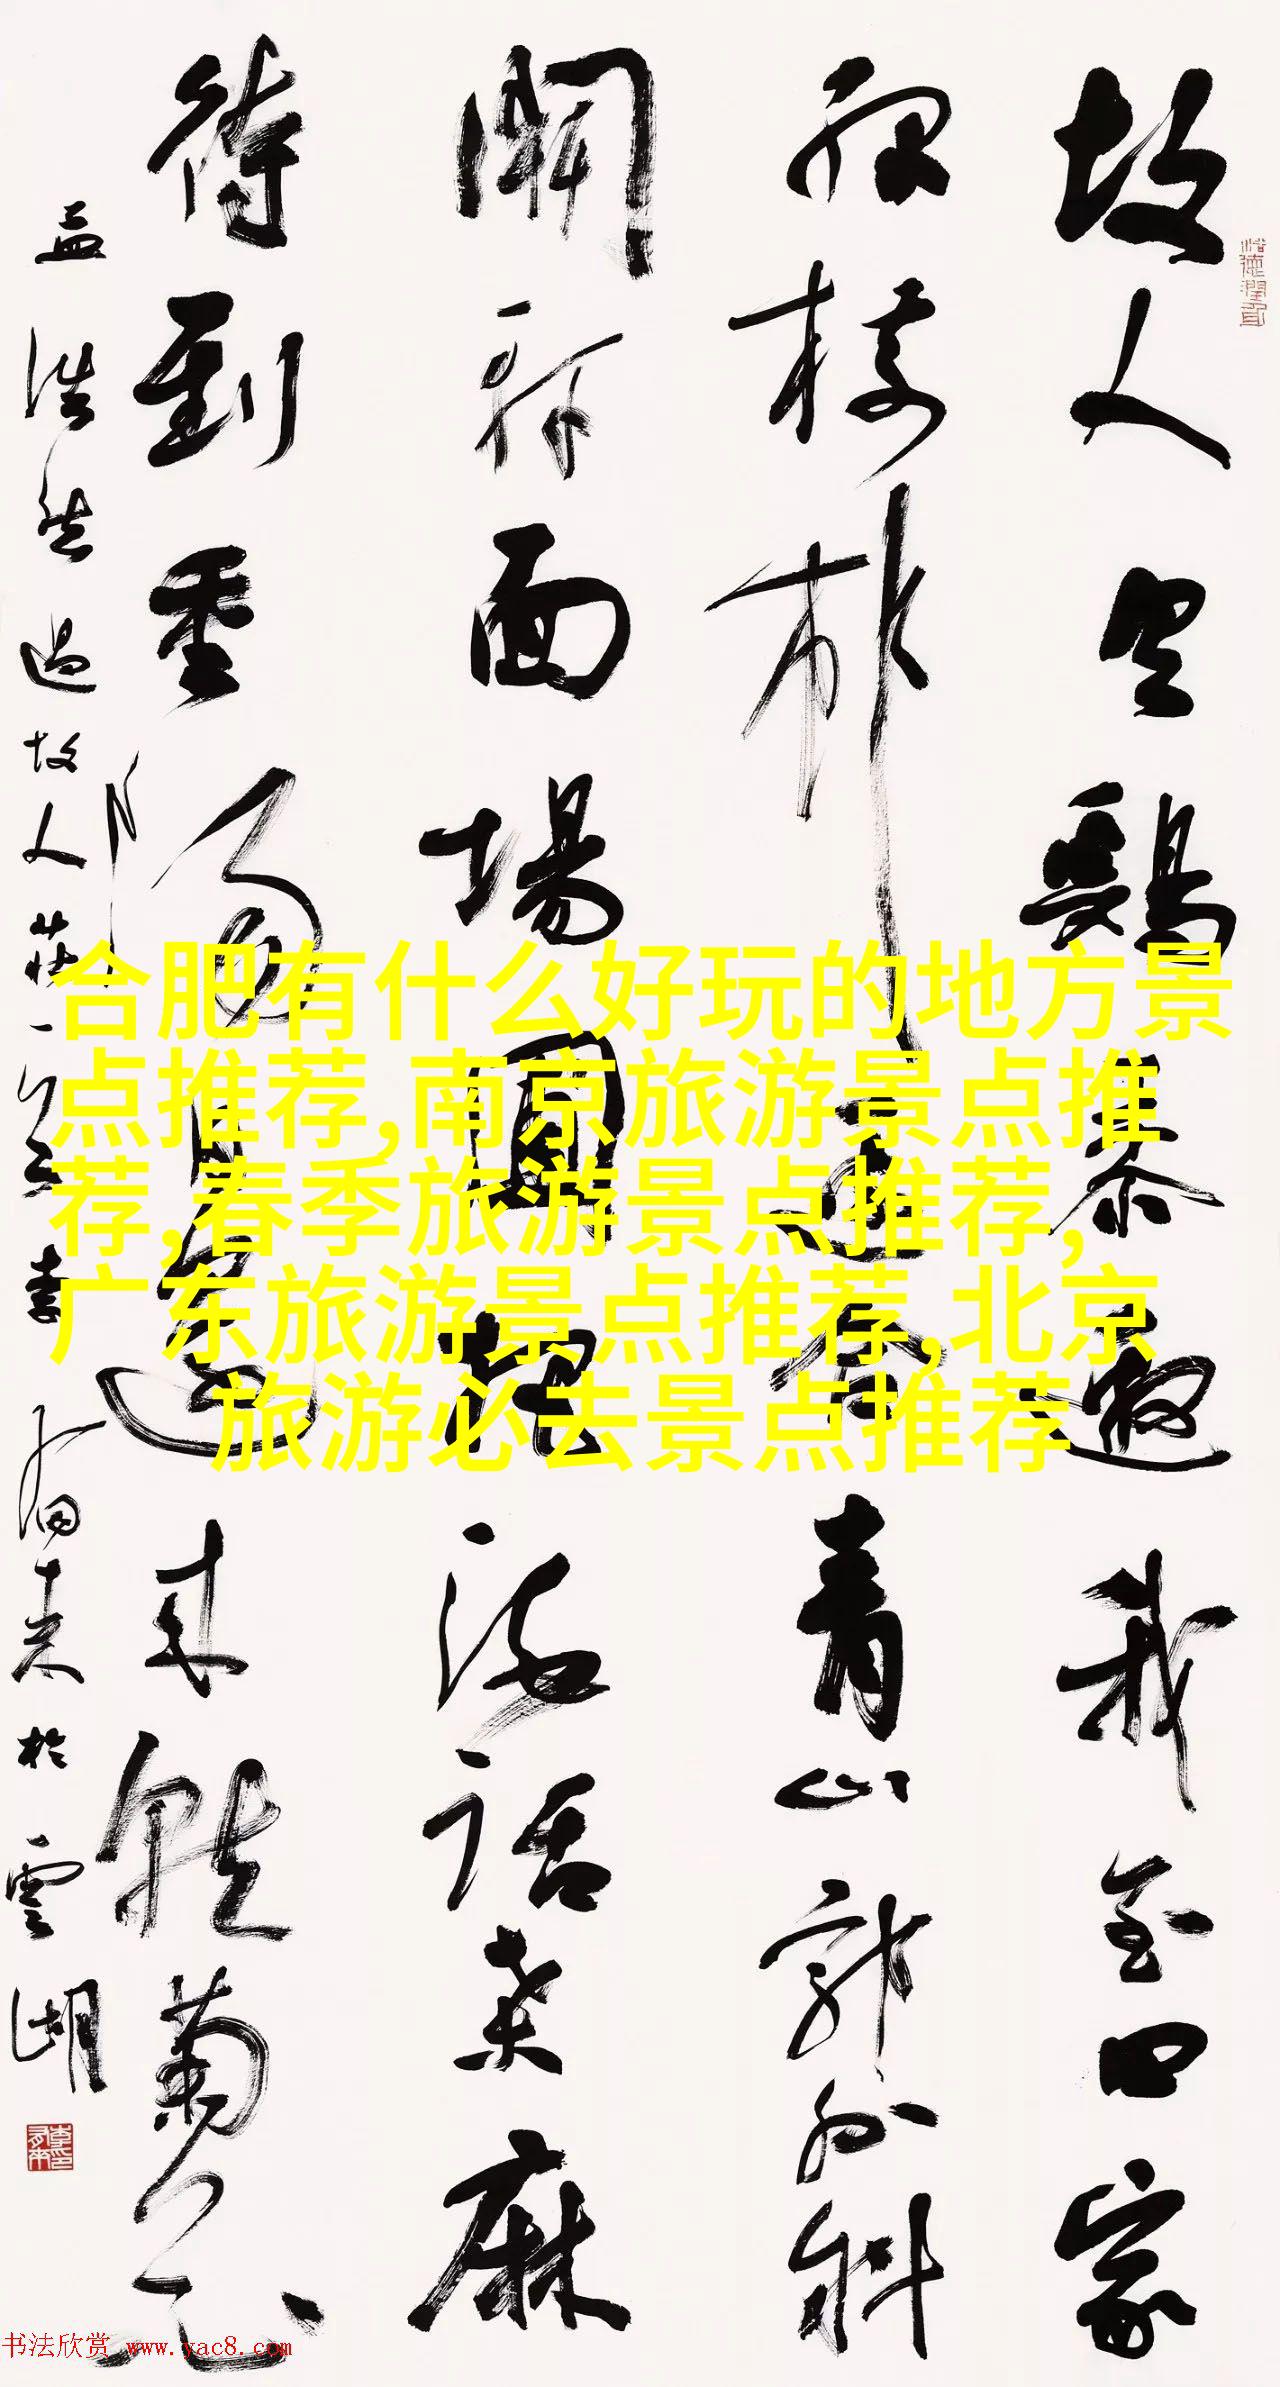 故人具鷄黍邀我至田家
緑樹村邊合青山郭外斜
開軒面場圃把酒話桑麻
待到重陽日還來就菊花
孟浩然過故人莊一有来於雲湖
合肥有什么好玩的地方景
点推荐,南京旅游景点推
荐,春季旅游景点推荐,
广东旅游景点推荐,北京
旅游必去景点推荐
书法欣赏 www.yac8.com